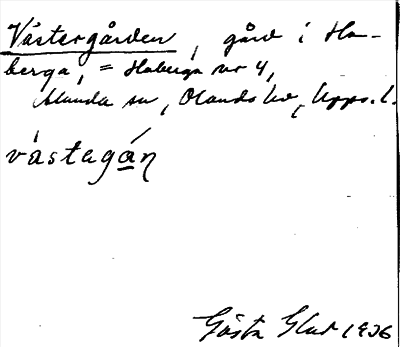 Västergården, gård i Ha-
berga, = Haberga nr 4,
Alunda sn, Olands hd, Upps. l.
västagån
Gösta 1936